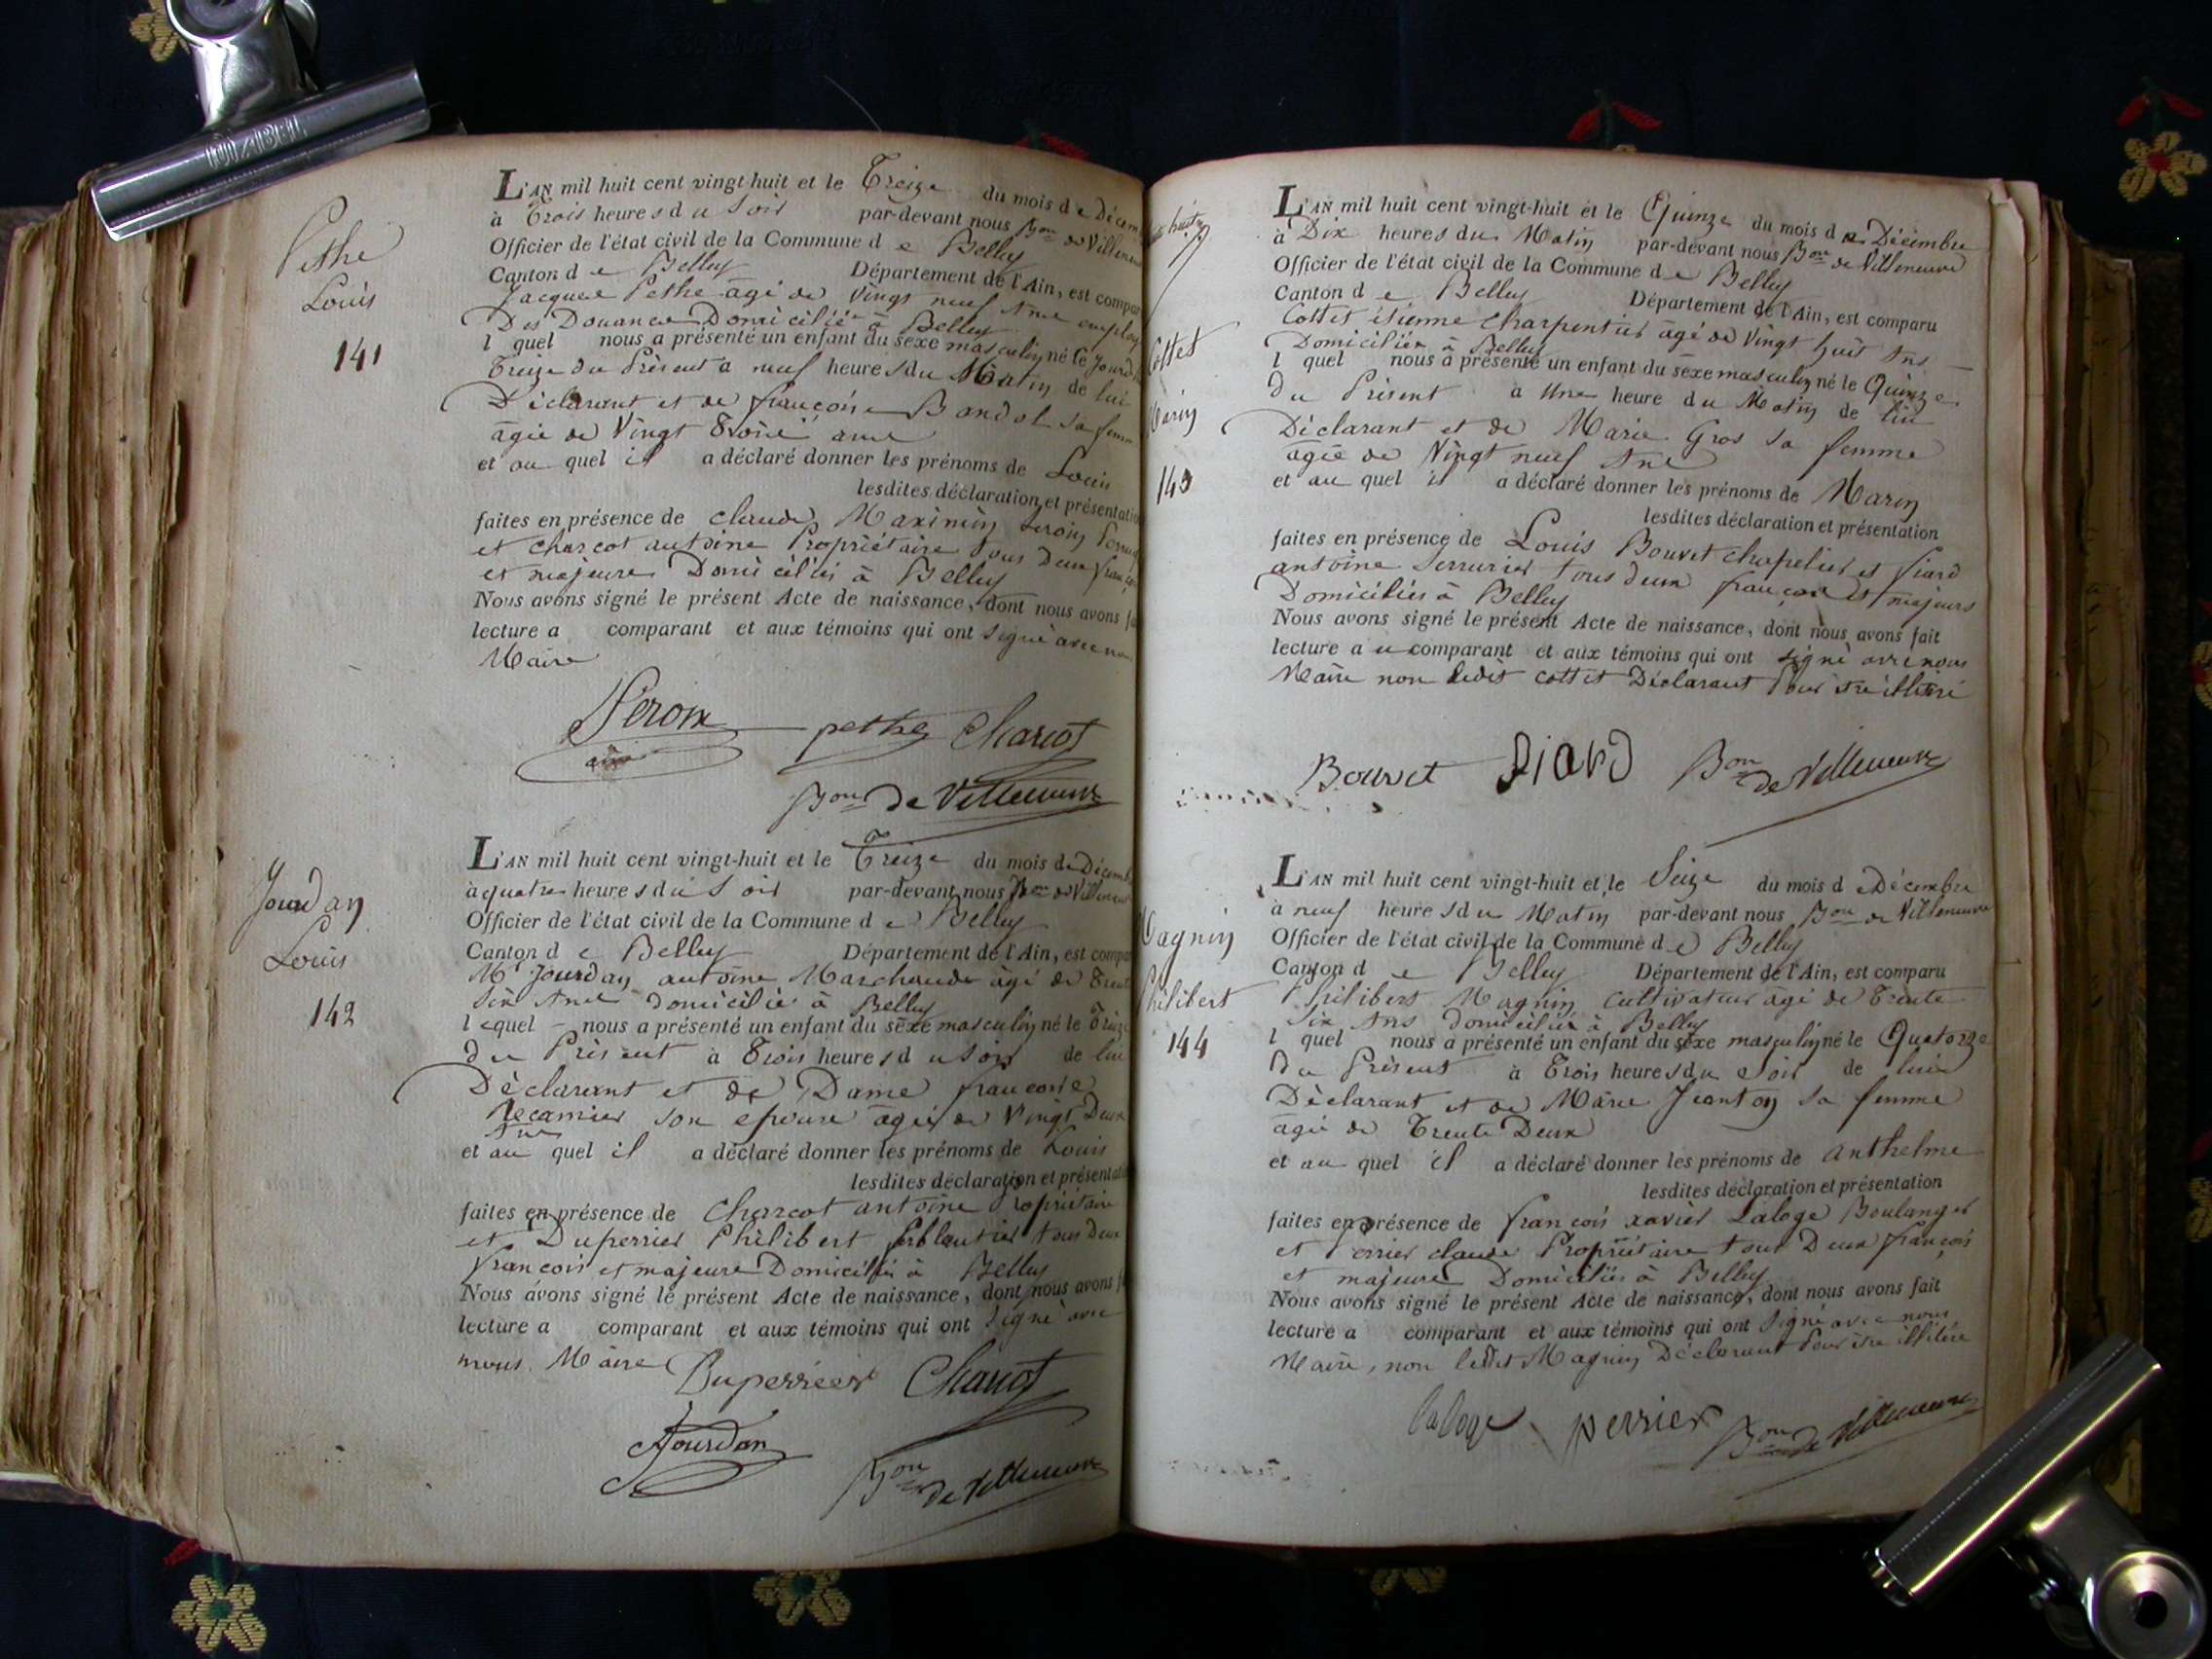 Pethe
Louis
141
L'AN mil huit cent vingt-huit et le Treize du mois de Décem
à Trois heures du Soir par-devant nous Bon de Villeneu
Officier de l'état civil de la Commune de Belley
Canton de Belley Département de l'Ain, est compar
Jacques Pethe âgé de Vingt neuf Ans employ
Des Douanes Domicilié à Belley
l quel nous a présenté un enfant du sexe masculin né Ce Jourd
Treize du Présent a neuf heures du Matin de lui
Déclarant et de françoise Bandol sa femme
âgée de Vingt Trois ans
et au quel il a déclaré donner les prénoms de Louis
lesdites déclaration et présentatio
faites en présence de Claude Maximin
et Charcot antoine Propriétaire tous Deux françois
et majeurs Domiciliés à Belley
Nous avons signé le présent Acte de naissance, dont nous avons fa
lecture a comparant et aux témoins qui ont Signé avec no
Maire
pethe Charcot
Bon de Villeneuve
Jourdan
Louis
142
L'AN mil huit cent vingt-huit et le Treize du mois de Décemb
à quatre heures du Soir par-devant nous Bon de Villeneuv
Officier de l'état civil de la Commune de Belley
Canton de Belley Département de l'Ain, est compa
Mr Jourdan antoine Marchand âgé de Trente
Six Ans domicilié à Belley
lequel nous a présenté un enfant du sexe masculin né le Treize
du Présent à Trois heures du Soir de lui
Déclarant et de Dame francoise
Recamier son epouse âgée de Vingt Deux
Ans
et au quel il a déclaré donner les prénoms de Louis
lesdites déclaration et présentati
faites en présence de Charcot antoine Propriétaire
et Duperrier Philibert ferblantier tous Deux
françois et majeurs Domiciliés à Belley
Nous avons signé le présent Acte de naissance, dont nous avons f
lecture a comparant et aux témoins qui ont Signé avec
nous Maire Duperrier Charcot
Jourdan
Bon de Villeneuve
Cottet
Marin
143
L'AN mil huit cent vingt-huit et le Quinze du mois de Décembre
à Dix heures du Matin par-devant nous Bon de Villeneuve
Officier de l'état civil de la Commune de Belley
Canton de Belley Département de l'Ain, est comparu
Cottet étienne Charpentier âgé de Vingt huit Ans
Domicilié à Belley
l quel nous a présenté un enfant du sexe masculin né le Quinze
du Présent à Une heure du Matin de lui
Déclarant et de Marie Gros sa femme
âgée de Vingt neuf Ans
et au quel il a déclaré donner les prénoms de Marin
lesdites déclaration et présentation
faites en présence de Louis Bouvet chapelier et Siard
antoine Serrurier tous deux françois et majeurs
Domiciliés à Belley
Nous avons signé le présent Acte de naissance, dont nous avons fait
lecture au comparant et aux témoins qui ont signé avec nous
Maire non ledit cottet Déclarant Pour être illitéré
Bouvet Siard Bon de Villeneuve
Magnin
Philibert
144
L'AN mil huit cent vingt-huit et le Seize du mois de Décembre
à neuf heures du Matin par-devant nous Bon de Villeneuve
Officier de l'état civil de la Commune de Belley
Canton de Belley Département de l'Ain, est comparu
Philibert Magnin Cultivateur âgé de Trente
Six Ans domicilié à Belley
l quel nous a présenté un enfant du sexe masculin né le Quatorze
du Présent à Trois heures du Soir de lui
Déclarant et de Marie Jeanton sa femme
âgée de Trente Deux
et au quel il a déclaré donner les prénoms de anthelme
lesdites déclaration et présentation
faites en présence de françois xavier Laloge Boulanger
et Perrier claude Propriétaire tous Deux françois
et majeurs Domiciliés à Belley
Nous avons signé le présent Acte de naissance, dont nous avons fait
lecture a comparant et aux témoins qui ont Signé avec nous
Maire, non ledit Magnin Déclarant Pour être illitéré
laloge perrier Bon de Villeneuve